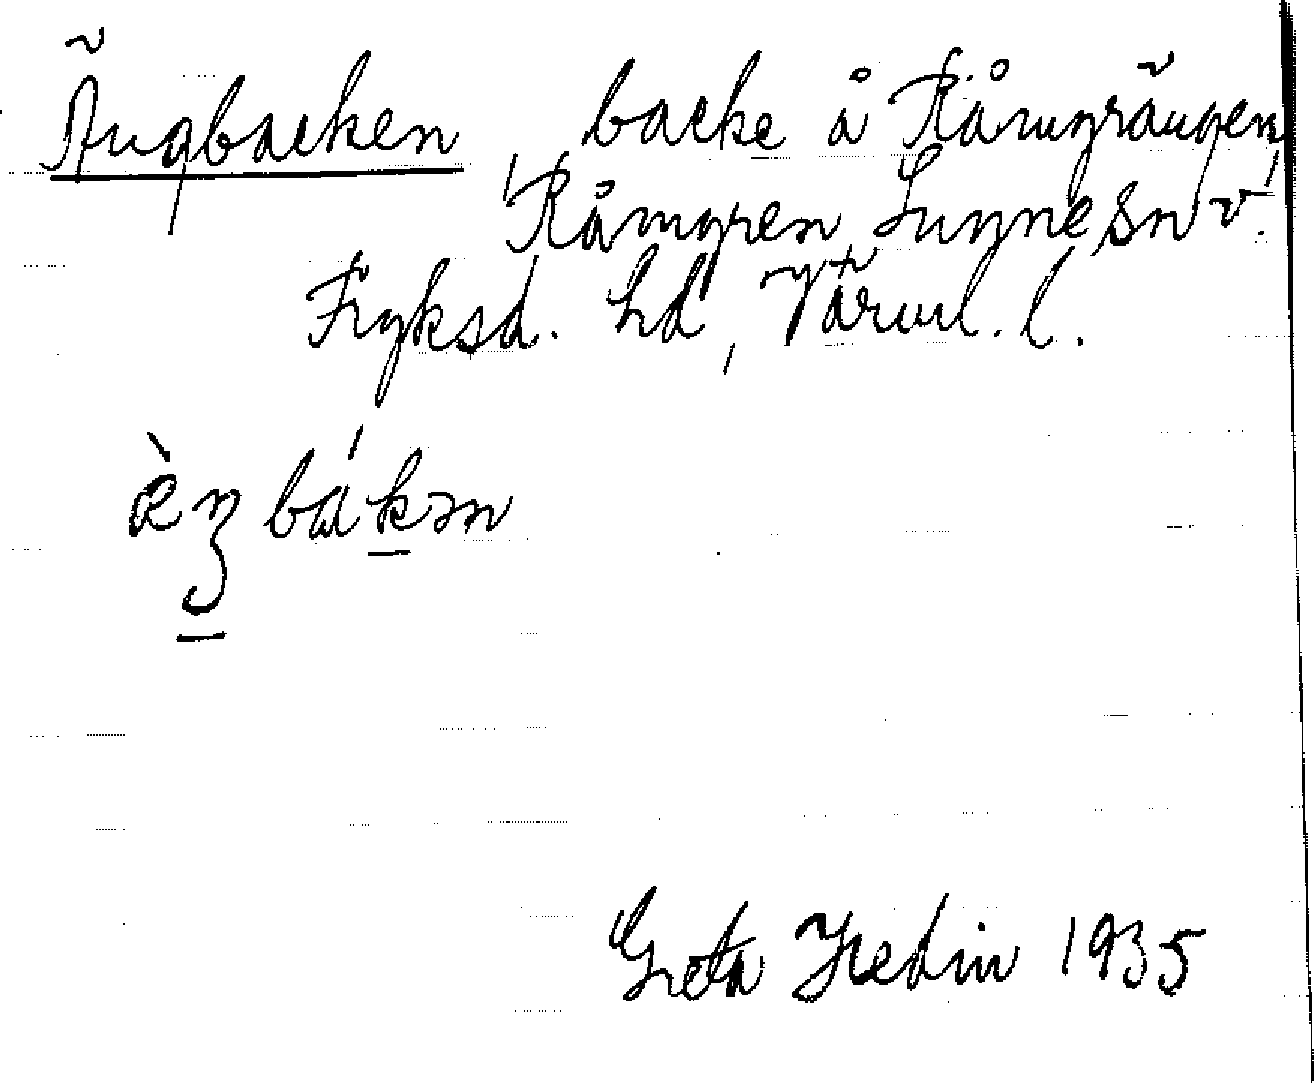 Ängbacken, backe å Råmgrängen,
Råmgren, Lysvik sn v.
Fryksd. hd, Värml. l.
ὲŋbákən
Greta Hedin 1935